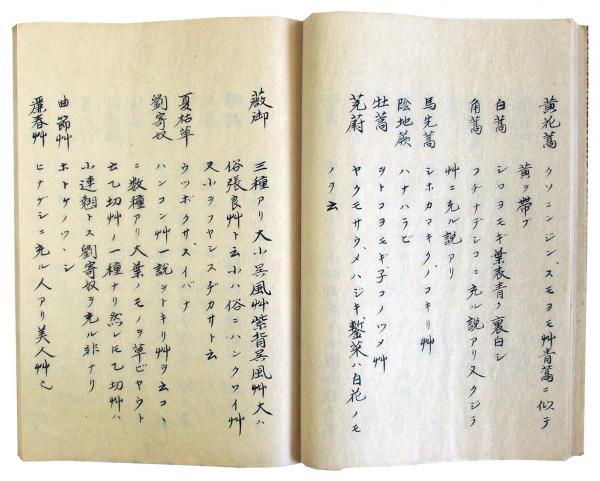 黄花蒿 クソニンジン、スモヨモ艸青蒿ニ似テ
黄ヲ帯ブ
白蒿 シロヨモギ葉表青ノ裏白シ
角蒿 コチナデシコニ充ル説アリ又クジラ
艸ニ充ル説アリ
馬先蒿 シホカマキク、ノコキリ艸
陰地蕨 ハナハラビ
牡蒿 ヲトコヨモギ子コノツメ艸
茺蔚 ヤクモサウ、メハジキ、鏨菜ハ白花ノモ
ノヲ云
薇御 三種アリ大小呉風艸紫背呉風艸大ハ
俗張良艸ト云小ハ俗ニハンクワイ艸
又小ヲフヤシスヂカサト云
夏枯草 ウツボクサ、スイバナ
劉寄奴 ハンコン艸一説ヲトキリ艸ヲ云コヽ
ニ数種アリ大葉ノモノヲ草ビヤウト
云乙切艸ノ一種ナリ然ルニ乙切艸ハ
小連翹トス劉寄奴ヲ充ル非ナリ
曲節艸 ホトケノツヽジ
麗春艸 ヒナゲシニ充ル人アリ美人艸也